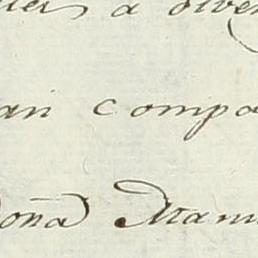 a diver
an compa
Doña Manu